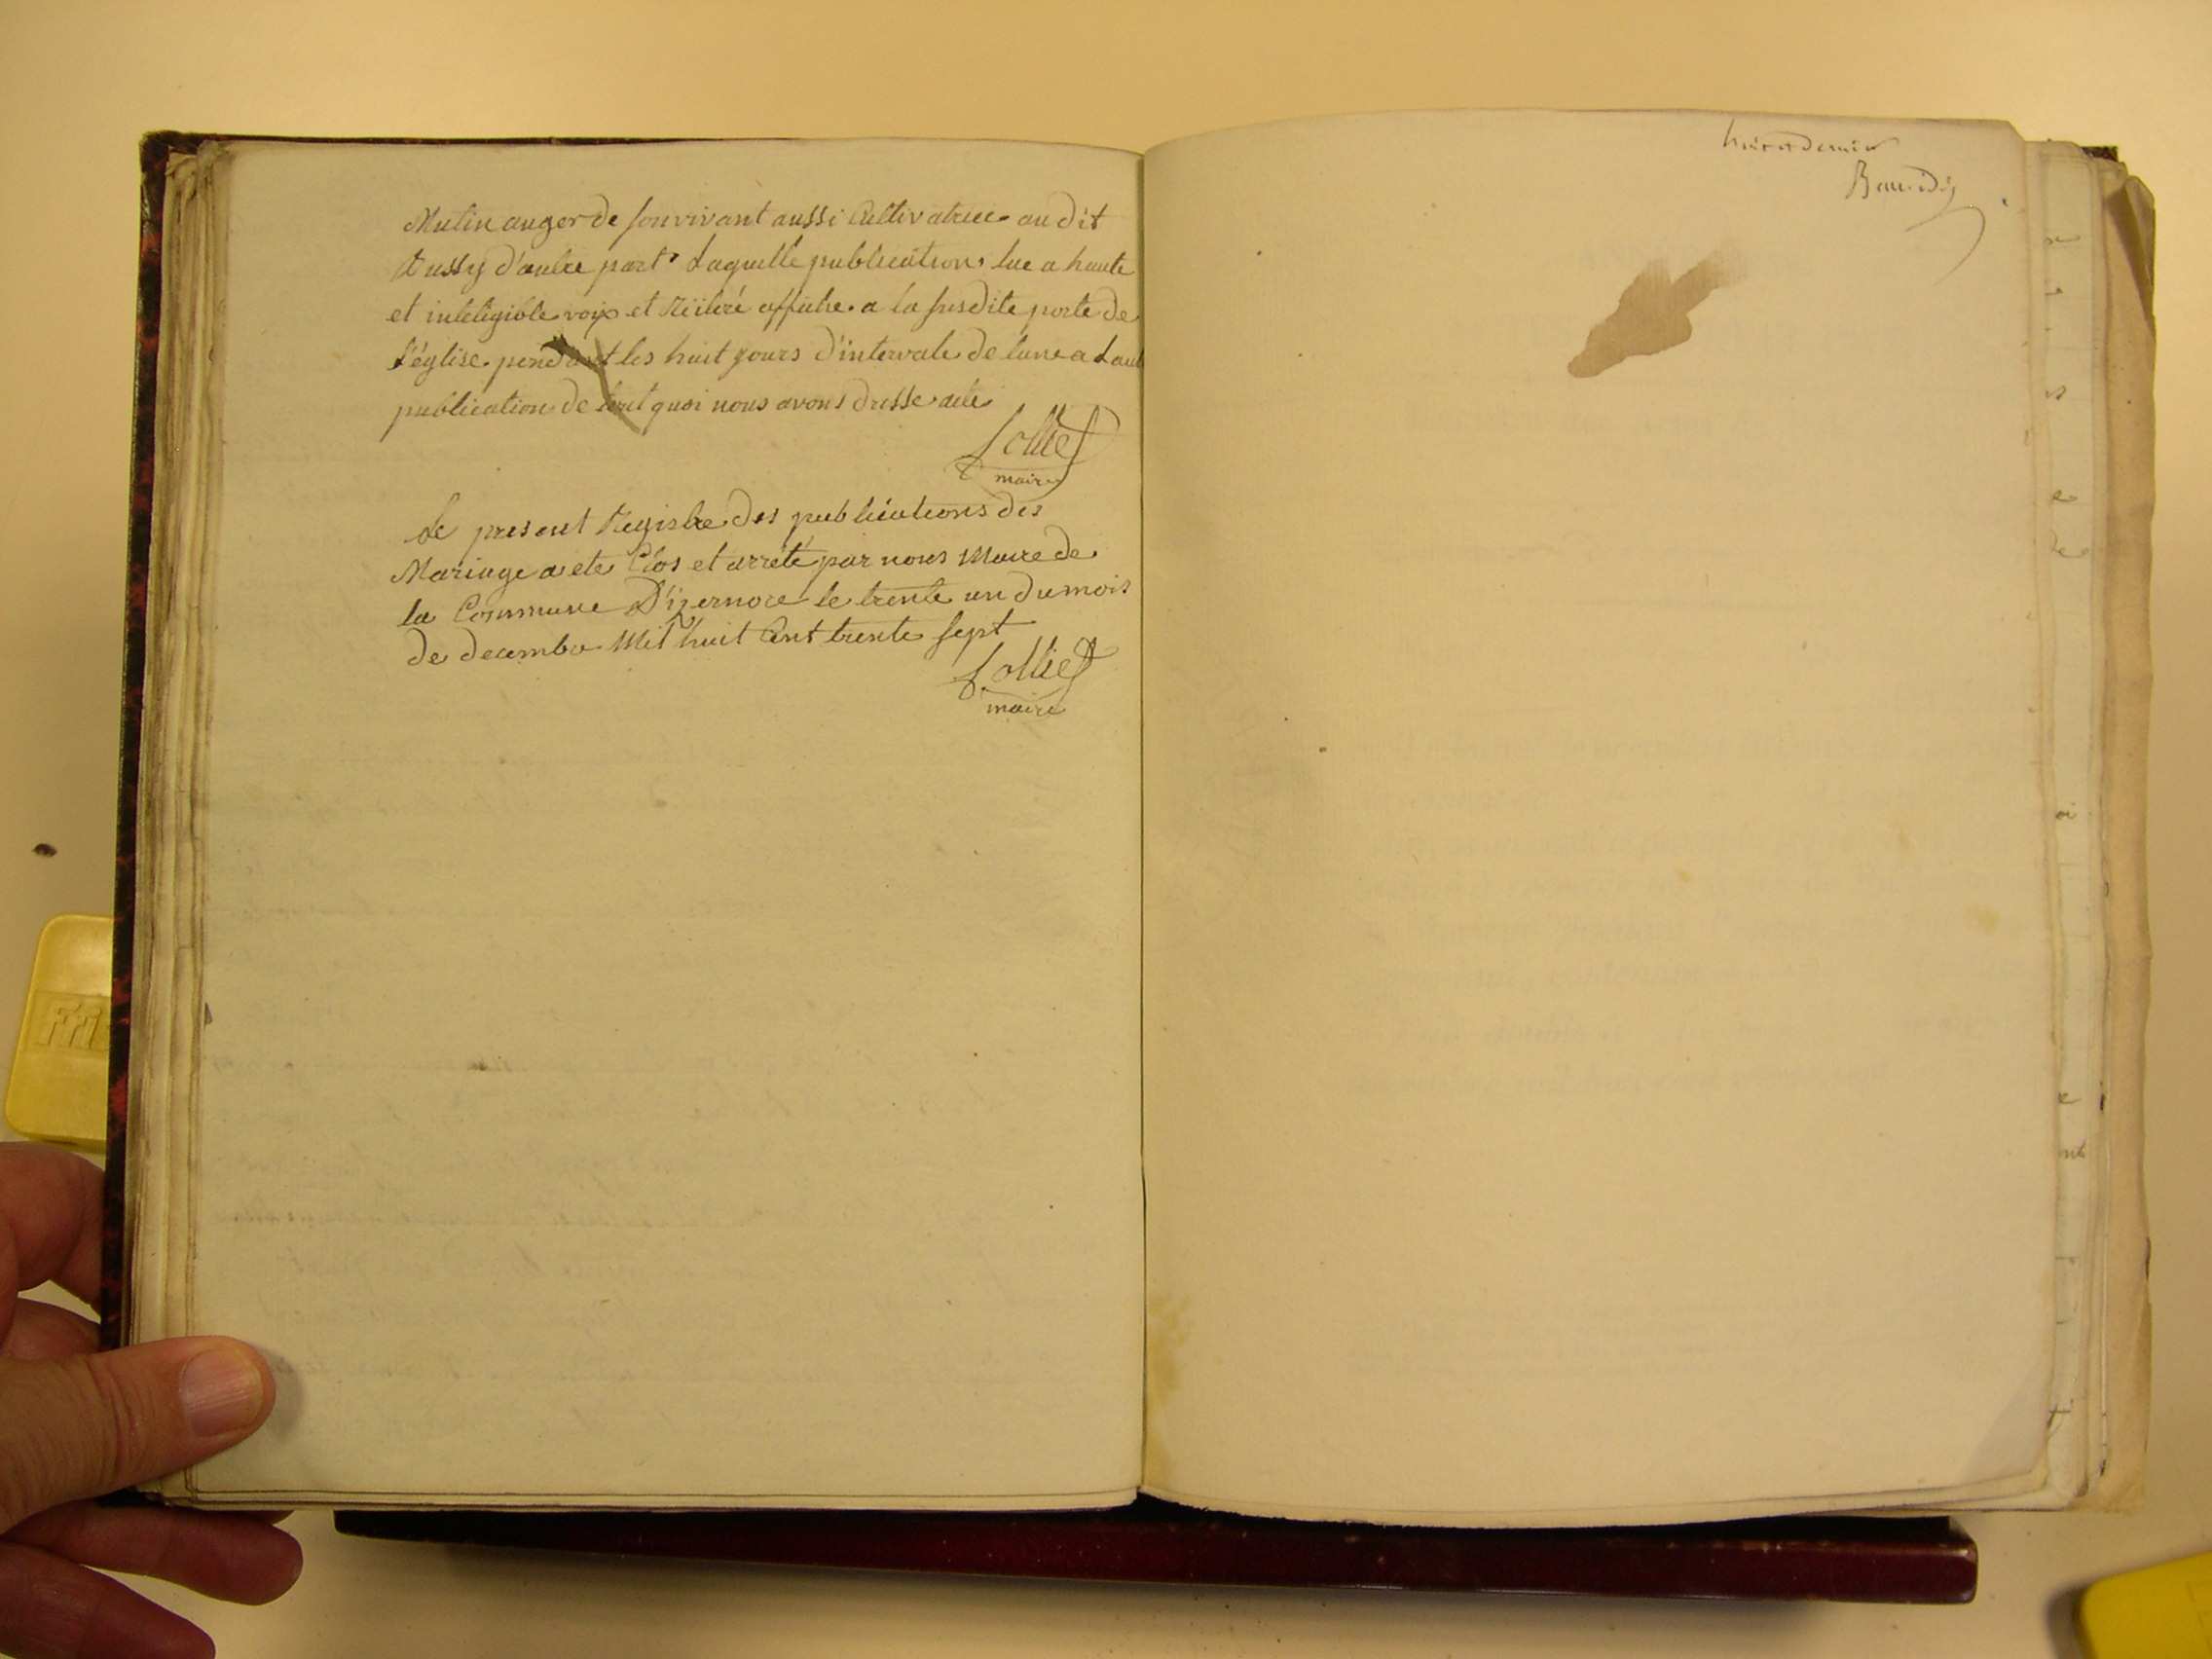 Mulin auger de son vivant aussi Cultivatrice au dit
tussy d'autre part Laquelle publication lue a haute
et inteligible voix et Reiteré affiche a la susdite porte de
l'église pendant les huit jours d'intervale de lune a Laut
publication de tout quoi nous avons dresse acte
maire
Le present Registre des publications des
Mariage a ete Clos et arreté par nous Maire de
la Commune D'izernore le trente un du mois
de decembre Mil huit Cent trente sept
maire
huit et dernier